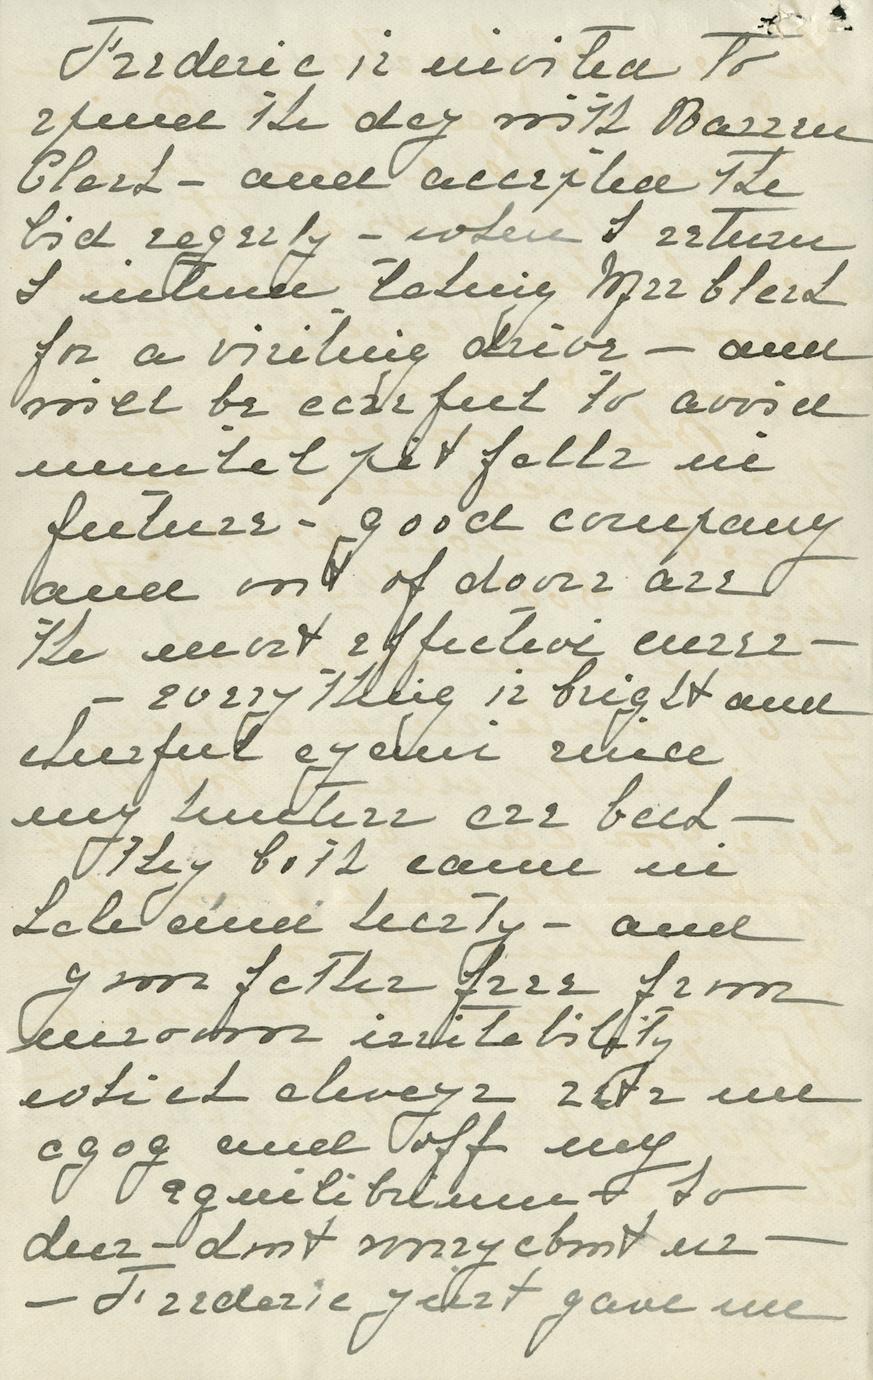 Frederic is invited to
spend the day with Barren
Clark - and accepted the
bid eagerly - when I return
I intend taking Mrs Clark
for a visiting drive - and
will be careful to avoid
mental pit falls in
future - good company
and out of doors are
the most effective cures -
- everything is bright and
cheerful again since
my hunters are back -
They both came in
hale and hearty - and
your father free from
nervous irritability
which always sets me
agog and off my
equilibrium - So
dear - dont worry about us -
- Frederic just gave me